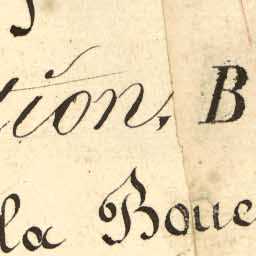 tion, B
la Bouc